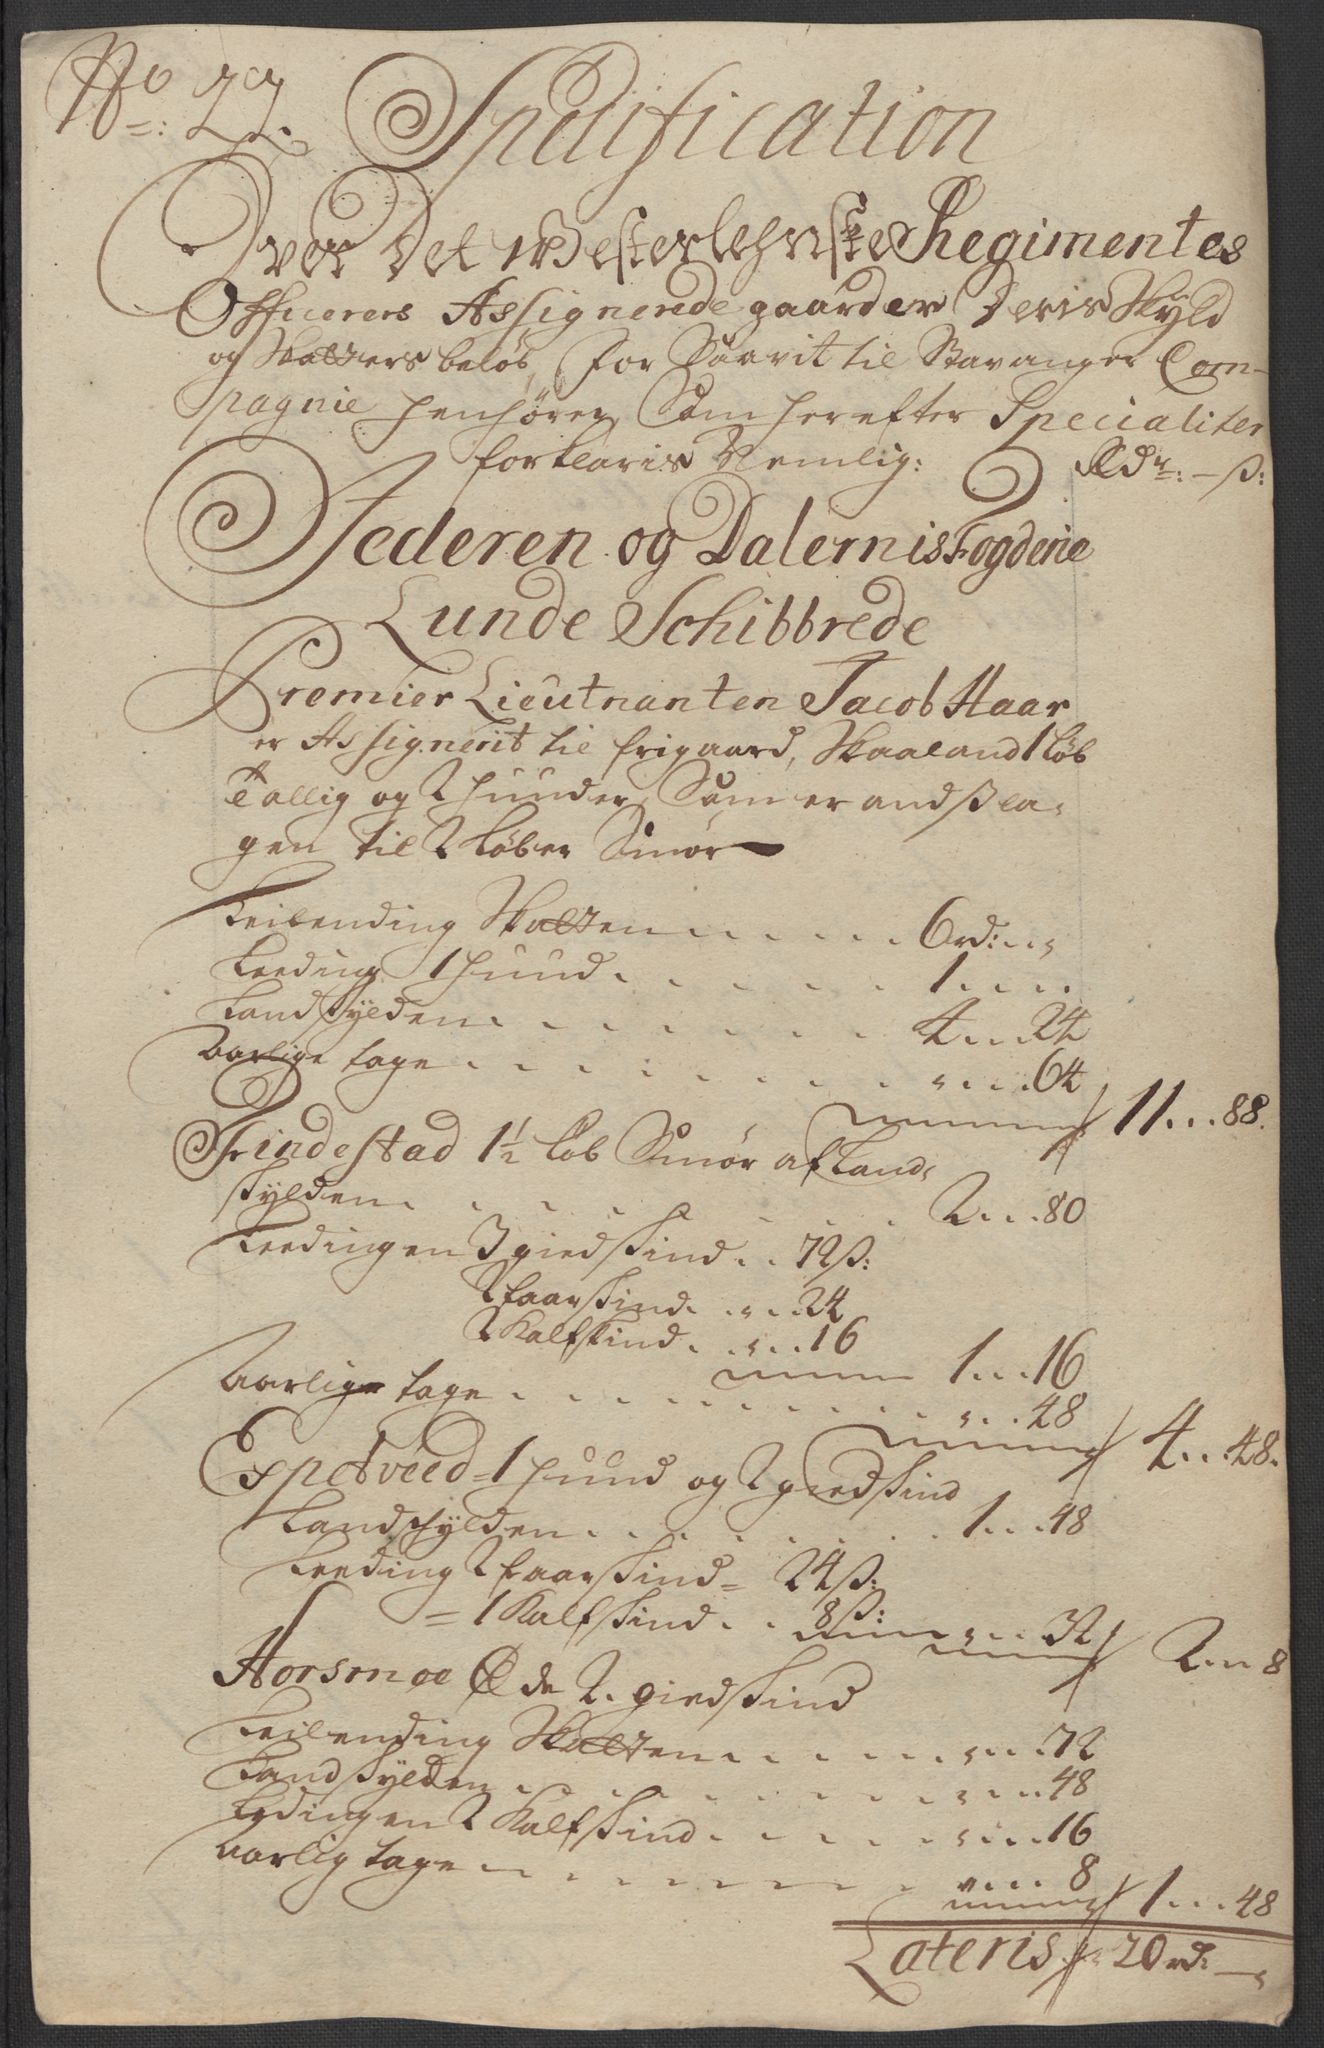 No: 27.
Specification
Over Det Westerlehnske Regimentes
Officerers Assignerede gaarder Deris Skyld
og Skatters beløb, for Saavit til Stavanger Com-
pagnie henhører, Som herefter Specialiter
forklaris Nemlig: Rdr: - ß:
Jederen og Dalernis Fogderie
Lunde Schibbrede
Premier Lieutnanten Jacob Haar
er Assignerit til frigaard, Skaaland 1 løb
tallig og 2 huuder, Som er andsla-
gen til 2 løber Smør
Leilending Skatten 6 rd: „
Leeding 1 huud 1 . . .
Landskylden 4 . . 24
Aarlige tage „ . . 64
11 . . . 88.
Trindestad 1½ løb Smør af Land-
skylden 2 . . . 80
Leedingen 3 giedskind . . 72 ß:
2 faarskind . . „ . . 24
2 Kalfskind . . „ . . 16
1 . . . 16
Aarlige tage „ . . 48
4 . . . 48.
Espetveed = 1 huud og 2 giedskind
Landskylden 1 . . . 48
Leeding 2 faarskind = 24 ß:
= 1 Kalfskind . . 8 ß: „ . . . 32
2 . . 8
Horsmoe Øde 2 giedskind
Leilending Skatten „ . . . 72
Landskylden „ . . . 48
Ledingen 2 Kalfskind „ . . . 16
Aarlig tage „ . . . 8
1 . . . 48
Lateris 20 rd: - „